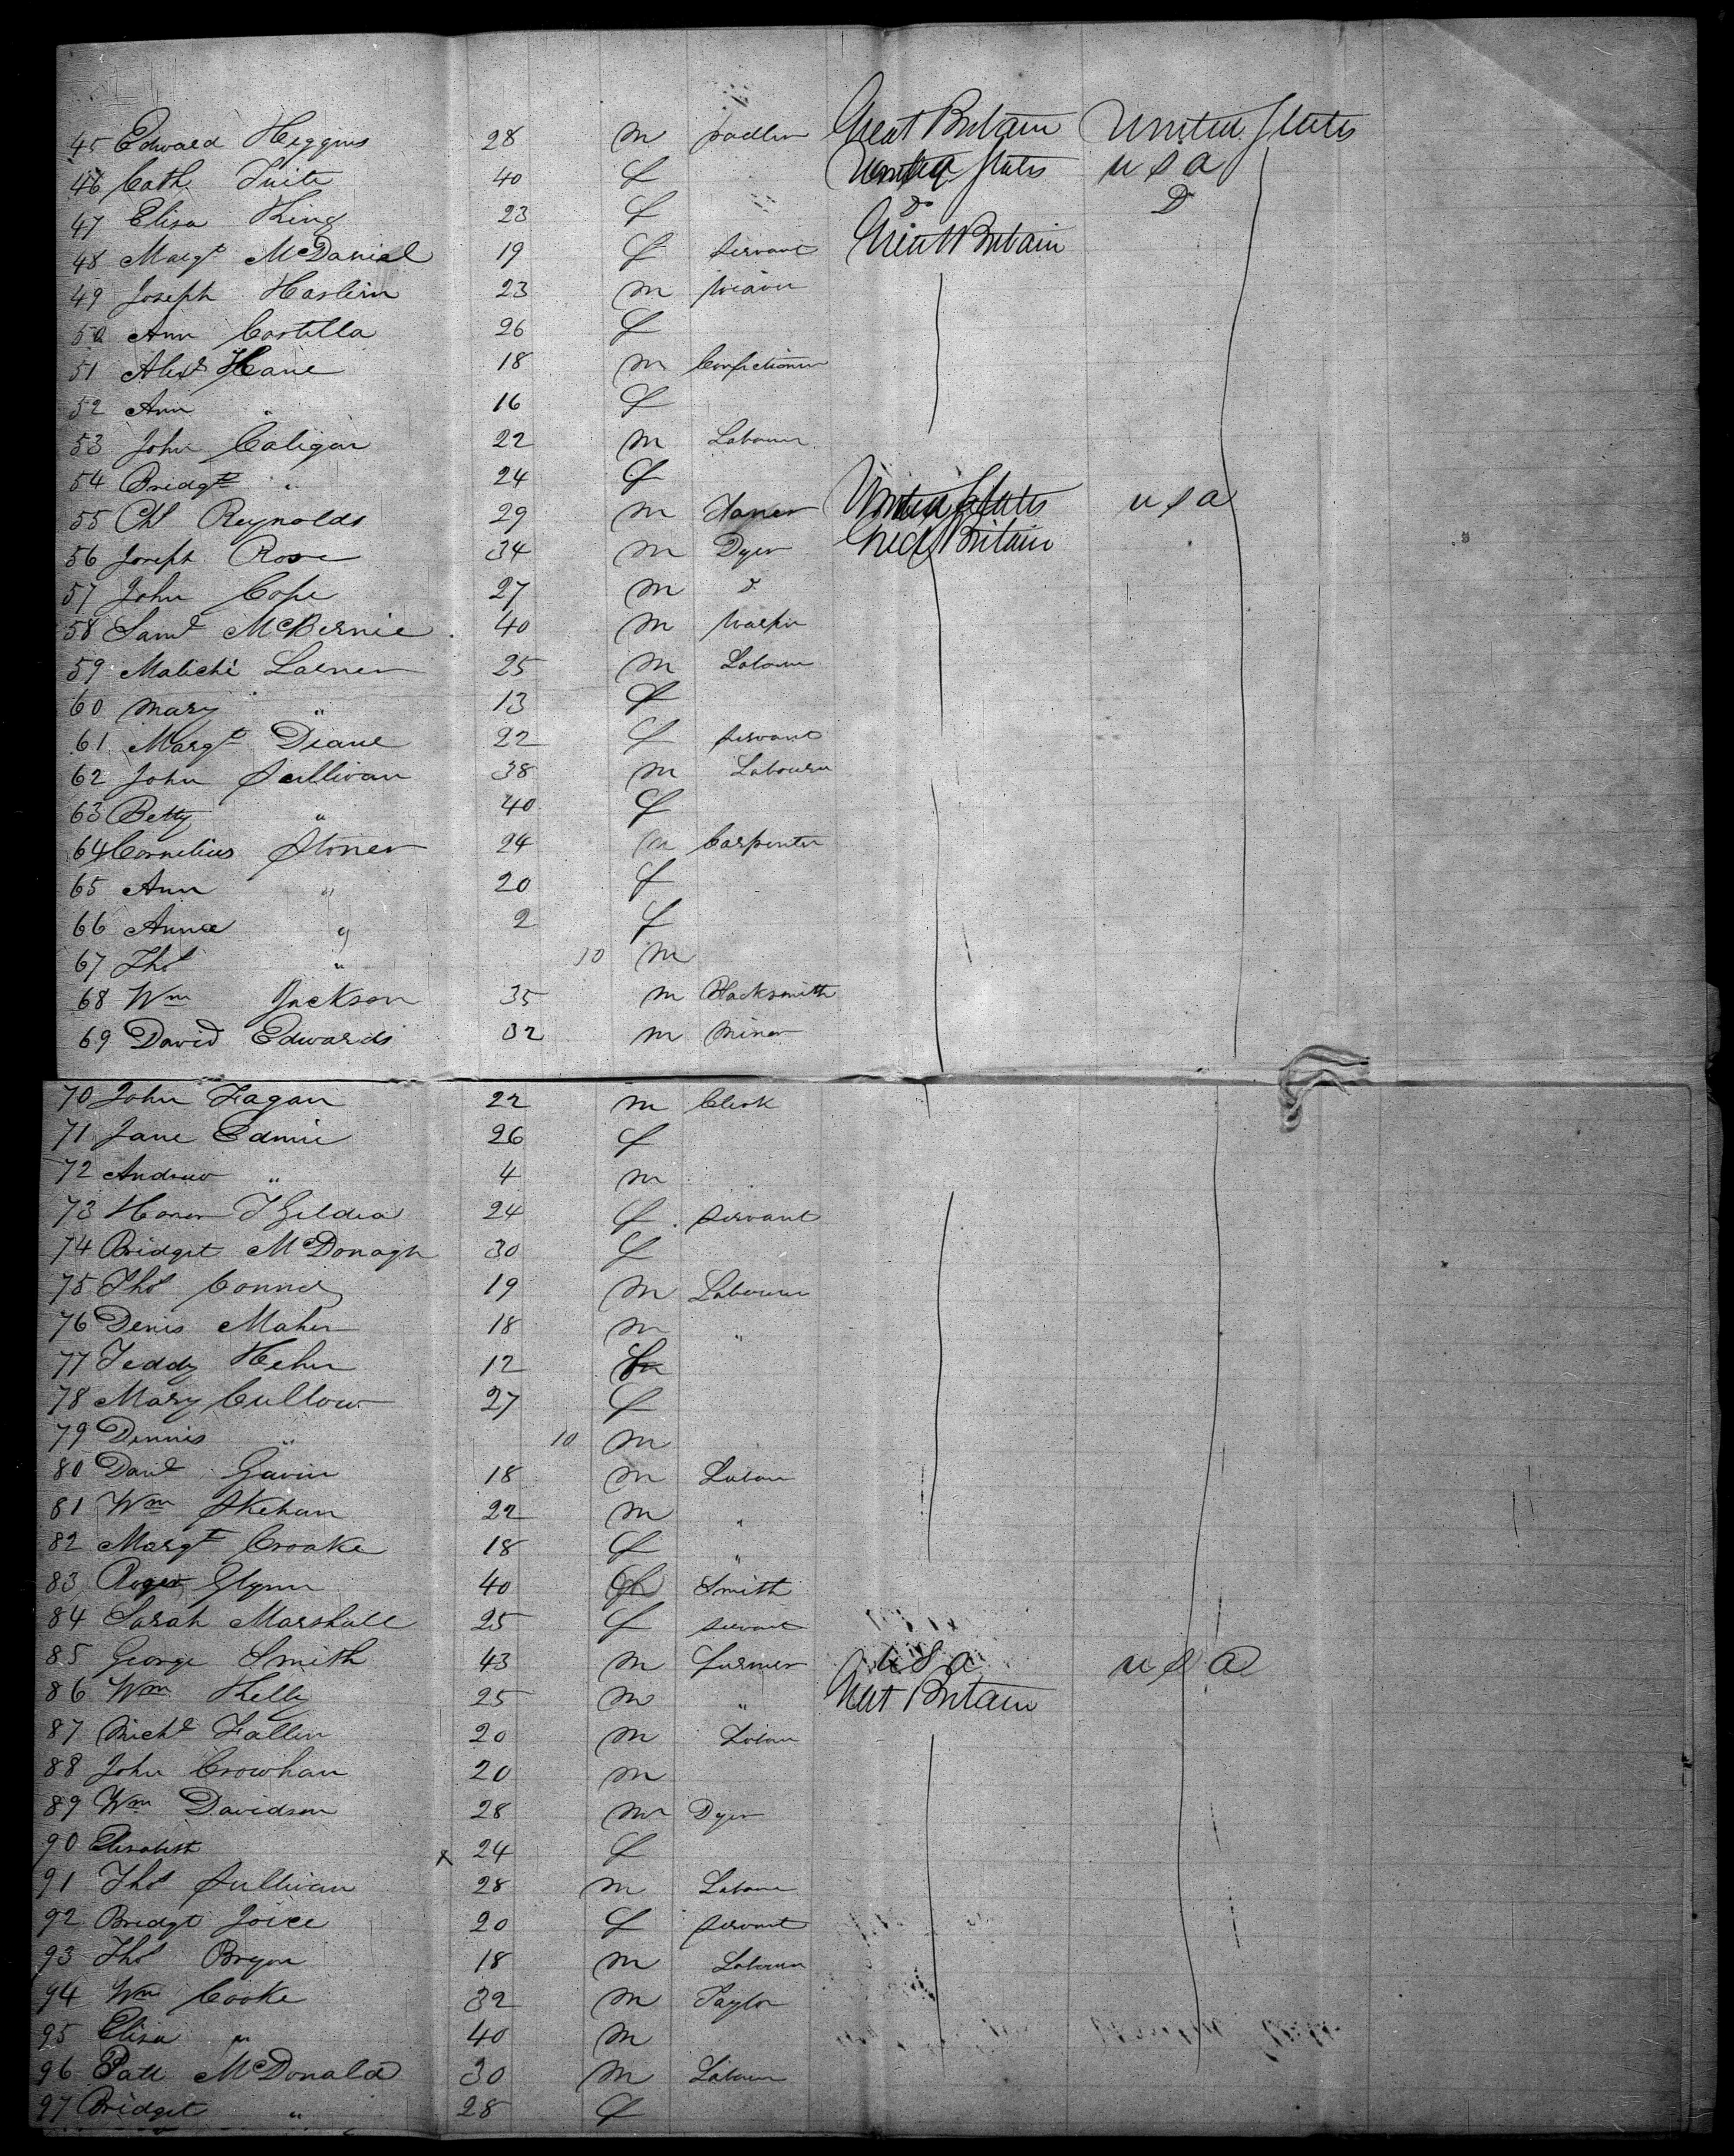 45 Edward Higgins 28 m padler Great Britain United States
46 Cath Tuite 40 f United States U S A
47 Elisa King 23 f Do D
48 Margt McDaniel 19 f Servant Great Britain
49 Joseph Haslem 23 m Weaver
50 Ann Costilla 26 f
51 Alexr Hane 18 m Confectioner
52 Ann " 16 f
53 John Caligan 22 m Labourer
54 Bridgt " 24 f
55 Chs Reynolds 29 m United States U S A
56 Joseph Rose 34 m Dyer Great Britain
57 John Cope 27 m Do
58 Saml McBernie 40 m Warper
59 Malichi Larner 25 m Labourer
60 Mary " 13 f
61 Margt Diane 22 f Servant
62 John Sullivan 38 m Labourer
63 Betty " 40 f
64 Cornelius Stoner 24 m Carpenter
65 Ann " 20 f
66 Annie " 2 f
67 Thos " 10 m
68 Wm Jackson 35 m Blacksmith
69 David Edwards 32 m Miner
70 John Fagan 22 m Clerk
71 Jane Edmie 26 f
72 Andrew " 4 m
73 Honor Gildea 24 f Servant
74 Bridget McDonagh 30 f
75 Thos Conner 19 m Labourer
76 Denis Maher 18 m "
77 Teddy Hehir 12
78 Mary Cullow 27 f
79 Dennis " 10 m
80 Danl Gavin 18 m Labour
81 Wm Skehan 22 m "
82 Margt Croake 18 f "
83 Roger Glynn 40 Smith
84 Sarah Marshall 25 f Servant
85 George Smith 43 m farmer U S A U S A
86 Wm Kelly 25 m " Great Britain
87 Michl Fallin 20 m Labour
88 John Crowhan 20 m
89 Wm Davidson 28 m Dyer
90 Elisabeth x 24 f
91 Thos Sullivan 28 m Labour
92 Bridgt Joice 20 f Servant
93 Thos Bryan 18 m Labourer
94 Wm Cooke 32 m Taylor
95 Elisa " 40 m
96 Patt McDonald 30 m Labourer
97 Bridget " 28 f